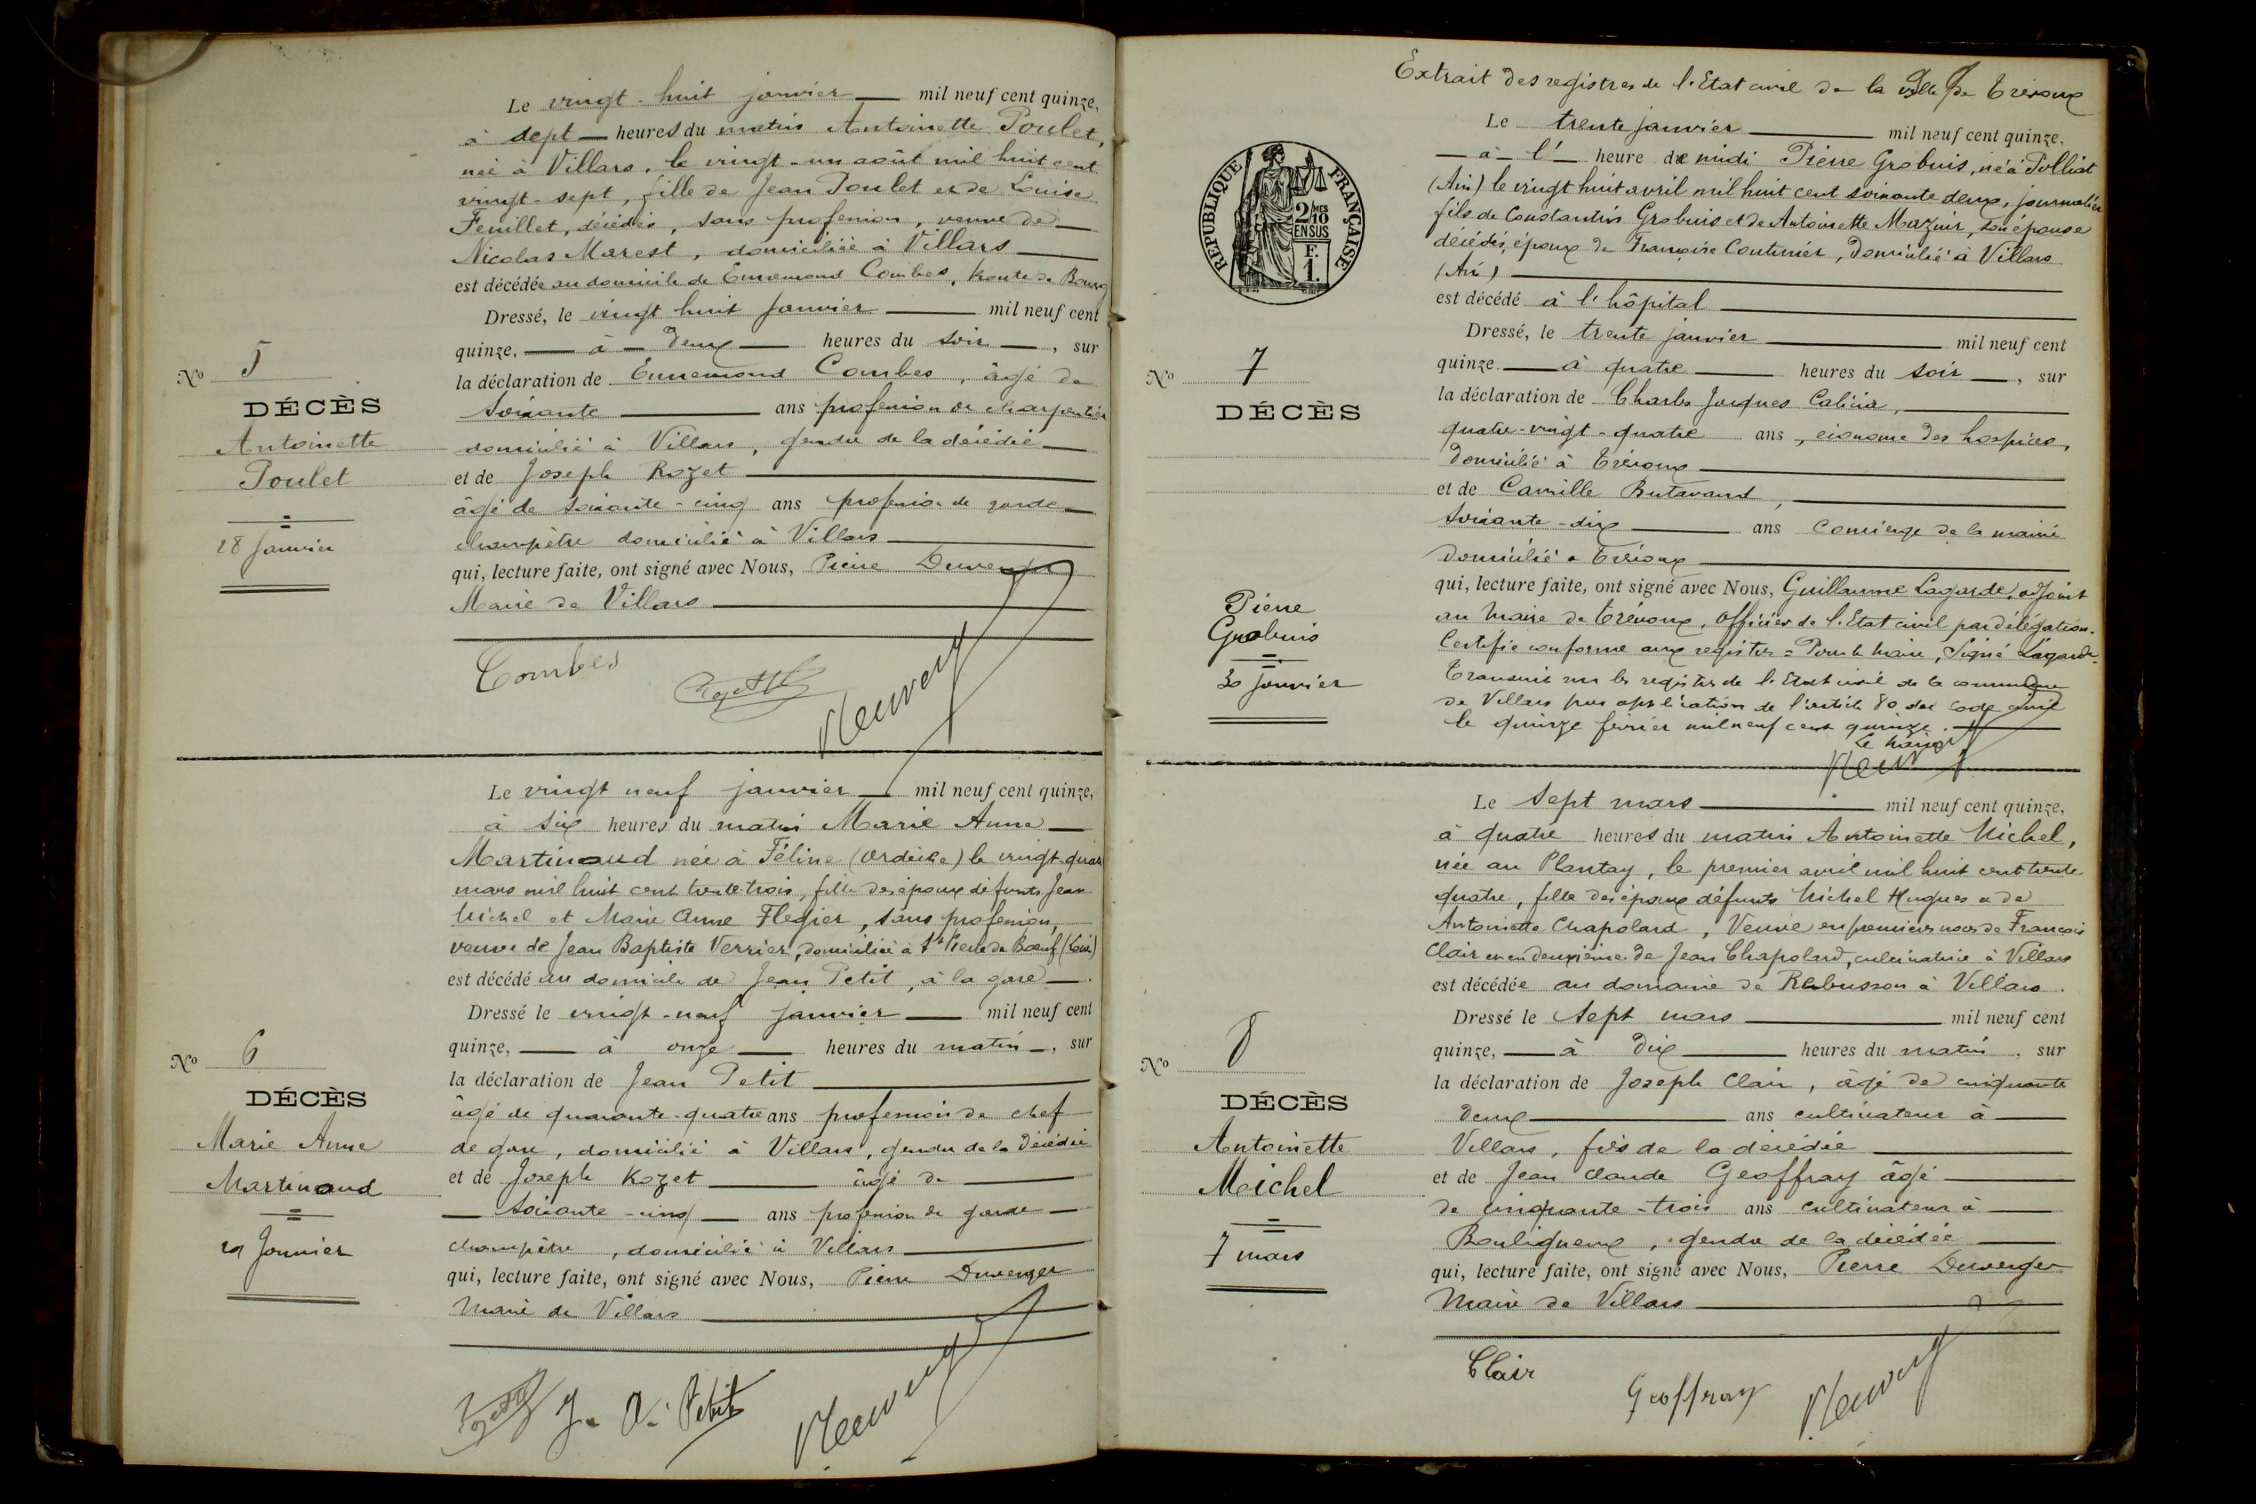 Le vingt-huit janvier — mil neuf cent quinze,
à sept — heures du matin Antoinette Poulet,
née à Villars, le vingt-un août mil huit cent
vingt-sept, fille de Jean Poulet et de Louise
Feuillet, décédés, sans profession, veuve de —
Nicolas Marest, domiciliée à Villars —
est décédée au domicile de Ennemond Combes, Route de Bourg
Dressé, le vingt huit janvier — mil neuf cent
quinze, — à — deux — heures du soir —, sur
la déclaration de Ennemond Combes, âgé de
soixante — ans profession de charpentier
domicilié à Villars, gendre de la décédée —
et de Joseph Rozet —
âgé de soixante-cinq ans profession de garde —
champêtre domicilié à Villars —
qui, lecture faite, ont signé avec Nous, Pierre Duverger
Maire de Villars —
Nº 5
DÉCÈS
Antoinette
Poulet
28 Janvier
Combes
Rozet
Duverger
Le vingt neuf janvier — mil neuf cent quinze,
à six heures du matin Marie Anne —
Martinaud née à Féline (Ardèche) le vingt-quatre
mars mil huit cent trente trois, fille des époux défunts Jean
Michel et Marie Anne Flegier, sans profession,
veuve de Jean Baptiste Verrier, domiciliée à St Pierre de Bœuf (Loire)
est décédé au domicile de Jean Petit, à la gare —.
Dressé le vingt-neuf janvier — mil neuf cent
quinze, — à onze — heures du matin —, sur
la déclaration de Jean Petit —
âgé de quarante-quatre ans profession de chef
de gare, domicilié à Villars, gendre de la décédée
et de Joseph Rozet — âgé de —
— soixante-cinq — ans profession de garde —
champêtre, domicilié à Villars —
qui, lecture faite, ont signé avec Nous, Pierre Duverger
Maire de Villars —
Nº 6
DÉCÈS
Marie Anne
Martinaud
29 Janvier
Rozet J. A. Petit Duverger
Extrait des registres de l'Etat civil de la Ville de Trévoux
Le trente janvier — mil neuf cent quinze.
— à — 1 — heure de midi Pierre Grobuis, né à Polliat
(Ain) le vingt huit avril mil huit cent soixante deux, journalier
fils de Constantin Grobuis et de Antoinette Mazuir, son épouse
décédés, époux de Françoise Couturier, domicilié à Villars
(Ain) —
est décédé à l'hôpital —
Dressé, le trente janvier — mil neuf cent
quinze. — à quatre — heures du soir —, sur
la déclaration de Charles Jacques Calicia, —
quatre-vingt-quatre ans, économe des hospices,
domicilié à Trévoux —
et de Camille Butavand, —
soixante-dix — ans concierge de la mairie
domicilié à Trévoux —
qui, lecture faite, ont signé avec Nous, Guillaume Lagarde, adjoint
au Maire de Trévoux, Officier de l'Etat civil par délégation.
Certifié conforme aux registres = Pour le Maire, Signé Lagarde.
Transcrit sur les registres de l'Etat civil de la commune
de Villars par application de l'article 80 du code civil
le quinze février mil neuf cent quinze. —
Le Maire
Duverger
RÉPUBLIQUE FRANÇAISE
2/10 MES
EN SUS
F.
1.
Nº 7
DÉCÈS
Pierre
Grobuis
30 Janvier
Le sept mars — mil neuf cent quinze,
à quatre heures du matin Antoinette Michel,
née au Plantay, le premier avril mil huit cent trente
quatre, fille des époux défunts Michel Hugues et de
Antoinette Chapolard, Veuve en premières noces de François
Clair et en deuxième de Jean Chapolard, cultivatrice à Villars
est décédée au domaine de Rebusson à Villars.
Dressé le sept mars — mil neuf cent
quinze, — à dix — heures du matin, sur
la déclaration de Joseph Clair, âgé de cinquante
deux — ans cultivateur à —
Villars, fils de la décédée —
et de Jean Claude Geoffray âgé —
de cinquante-trois ans cultivateur à —
Bouligneux, gendre de la décédée —
qui, lecture faite, ont signé avec Nous, Pierre Duverger
Maire de Villars —
Nº 8
DÉCÈS
Antoinette
Michel
7 mars
Clair
Geoffray
Duverger